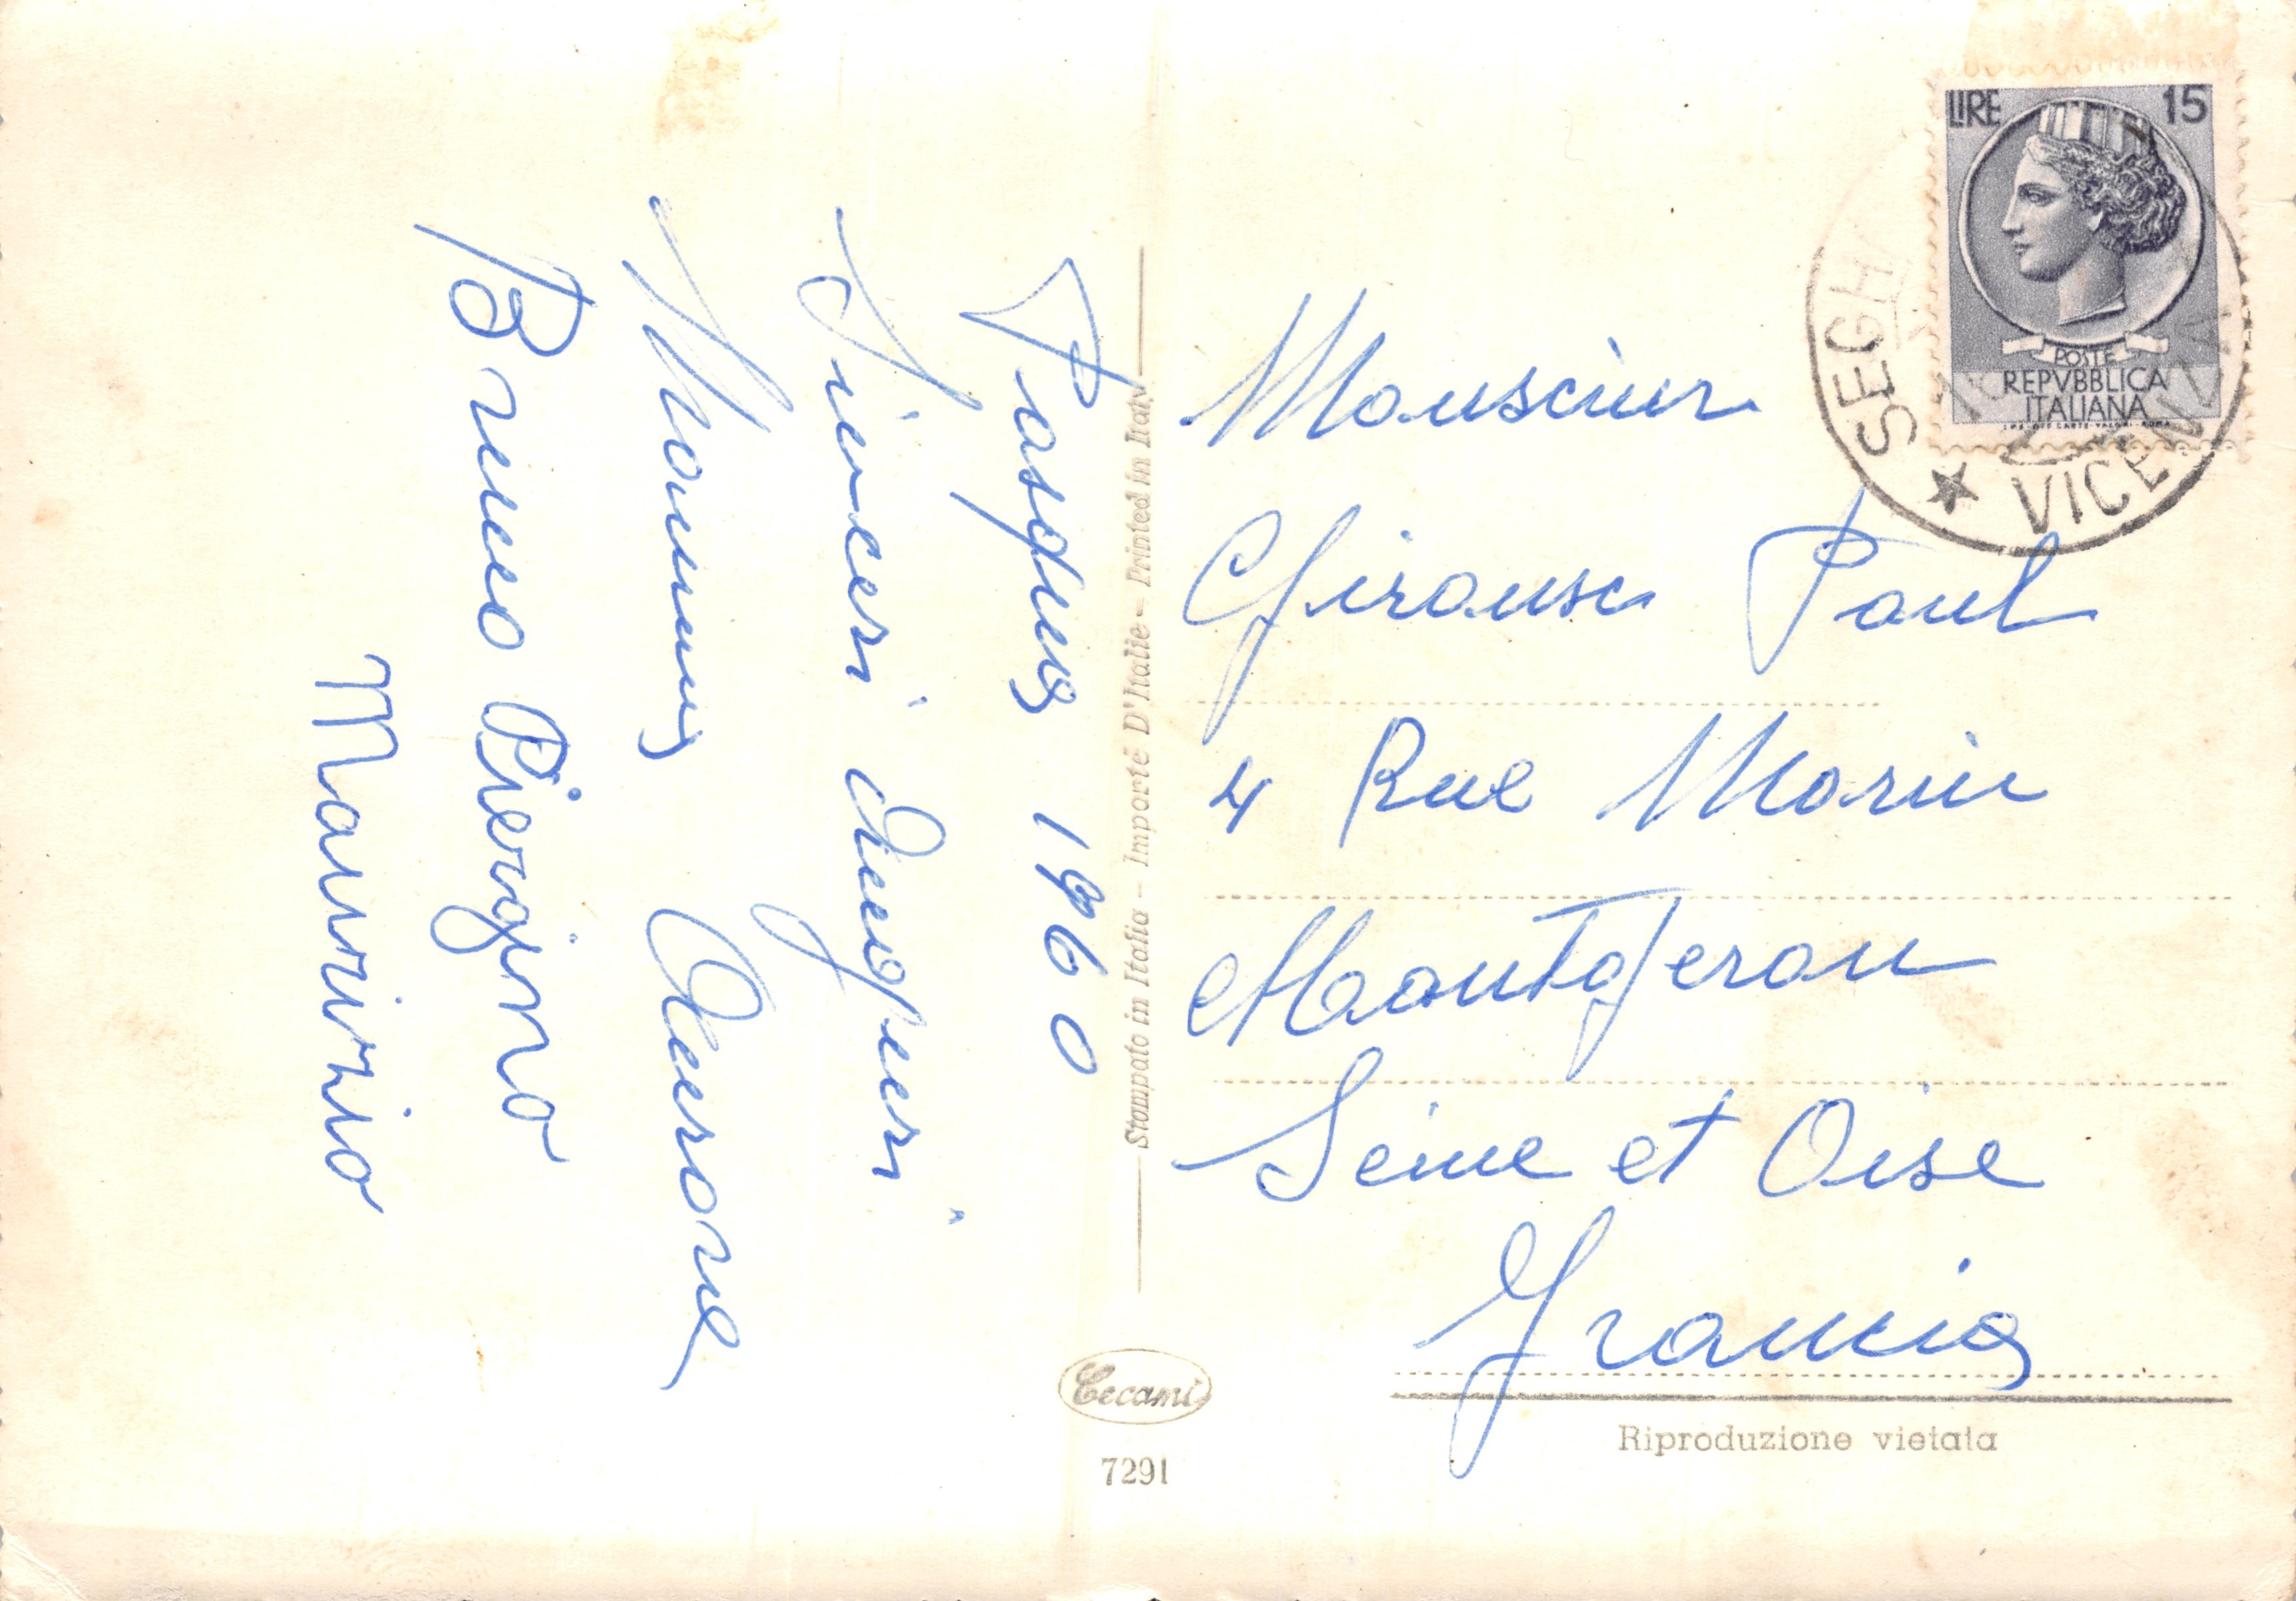 Pasqua 1960
Sinceri Auguri
Mariuccia Aurora
Bruno Piergino
Maurizio
Stampato in Italia - Importé D'Italie - Printed in Italy
Cecami
7291
LIRE 15
POSTE
REPVBBLICA
ITALIANA
SEGH
VICENZA
Monsieur
Paul
4 Rue Morin
Montgeron
Seine et Oise
Francia
Riproduzione vietata